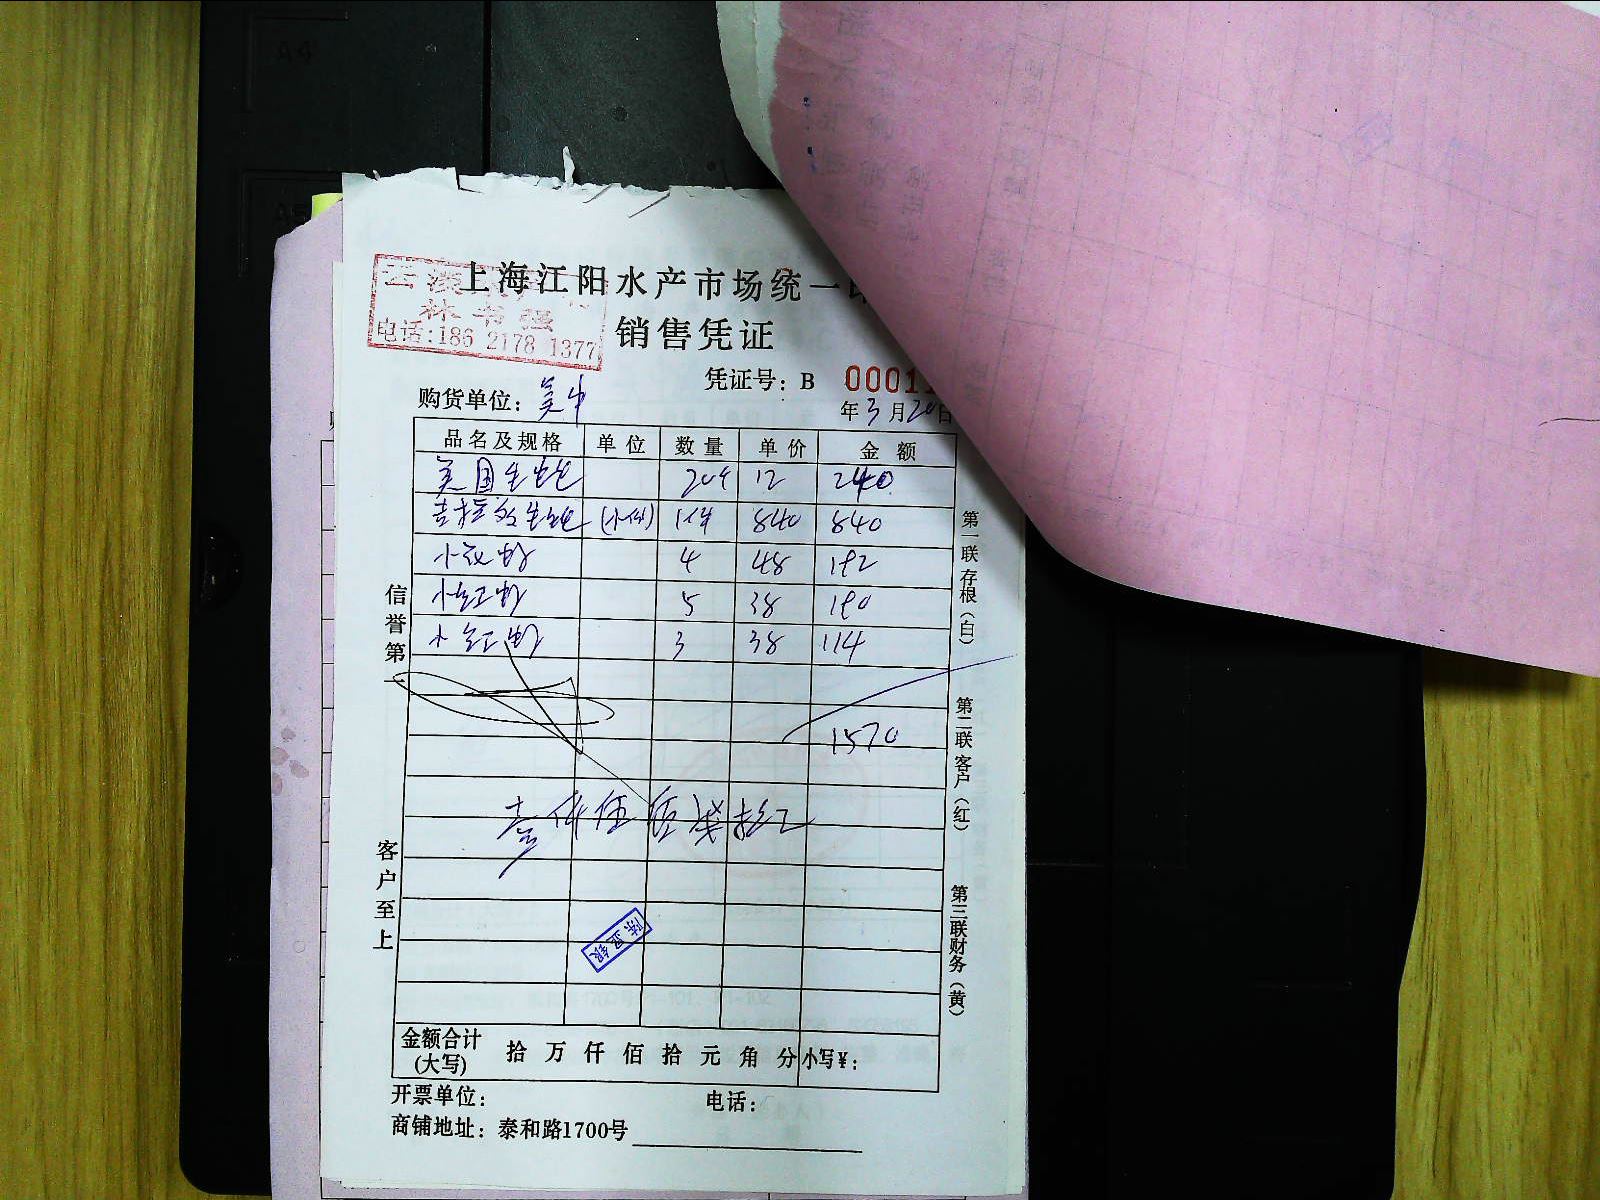 上海江阳水产市场统一
林书强
电话:186 2178 1377
销售凭证
凭证号: B 00011
购货单位: 美中
年3月20日
品名及规格 单位 数量 单价 金额
美国生蚝 20个 12 240
吉拉多生蚝 (小件) 1件 840 840
小 4 48 192
小红 5 38 190
小红 3 38 114
1570
壹仟伍佰柒拾
陈亚银
金额合计(大写) 拾 万 仟 佰 拾 元 角 分 小写¥:
开票单位: 电话:
商铺地址: 泰和路1700号
信誉第一
客户至上
第一联存根(白)
第二联客户(红)
第三联财务(黄)
A4
A5